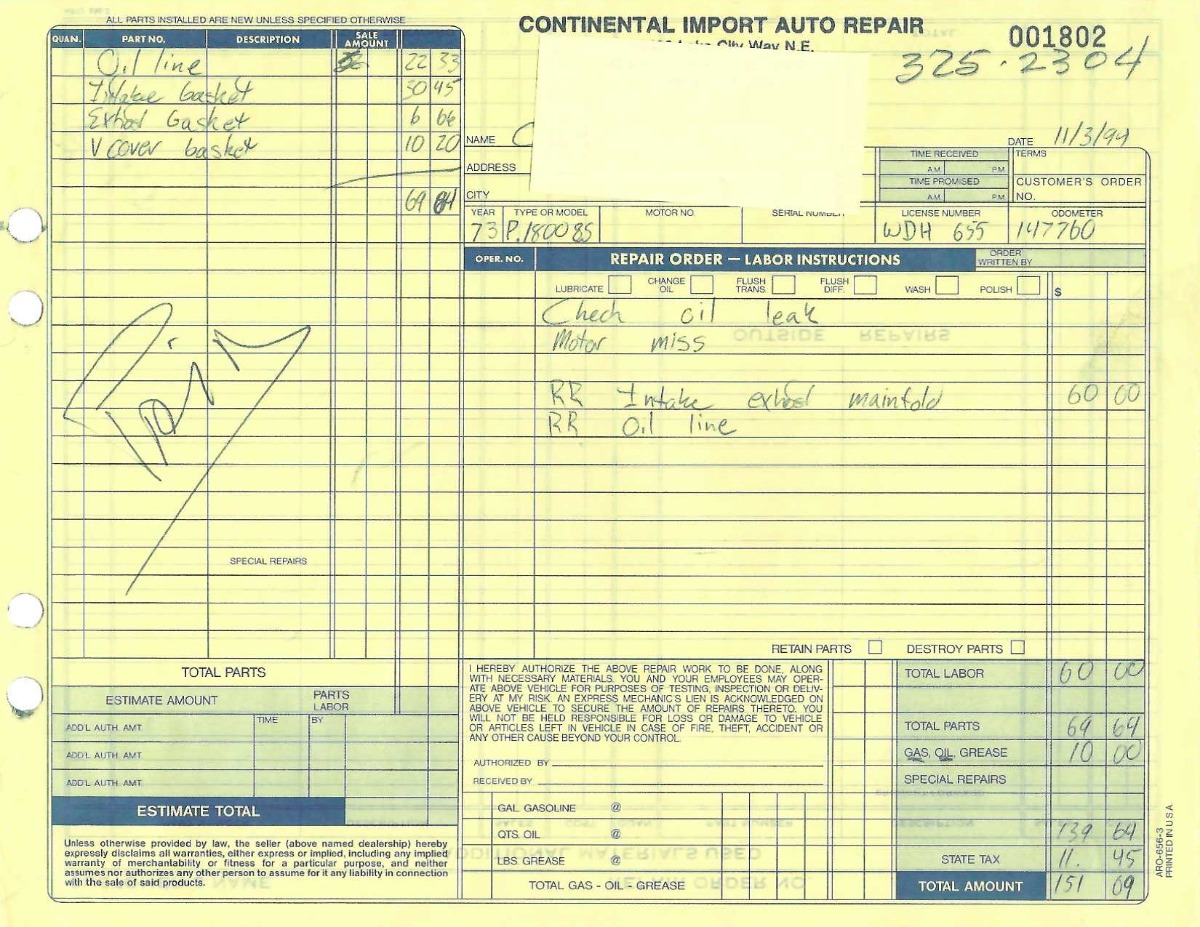 ALL PARTS INSTALLED ARE NEW UNLESS SPECIFIED OTHERWISE
CONTINENTAL IMPORT AUTO REPAIR
Lake City Way N.E.
001802
325-2304
QUAN. PART NO. DESCRIPTION SALE AMOUNT
Oil line 22 33
Intake Gasket 30 45
Exhost Gasket 6 66
V cover Gasket 10 20
69 64
NAME C
DATE 11/3/94
ADDRESS
CITY
TIME RECEIVED
A.M. P.M.
TIME PROMISED
A.M. P.M.
TERMS
CUSTOMER'S ORDER NO.
YEAR TYPE OR MODEL MOTOR NO. SERIAL NUMBER LICENSE NUMBER ODOMETER
73 P.1800 ES WDH 655 147760
OPER. NO. REPAIR ORDER — LABOR INSTRUCTIONS ORDER WRITTEN BY
LUBRICATE CHANGE OIL FLUSH TRANS. FLUSH DIFF. WASH POLISH $
Chech oil leak
Motor miss
RR Intake exhost mainfold 60 00
RR Oil line
Paid
SPECIAL REPAIRS
RETAIN PARTS DESTROY PARTS
TOTAL PARTS
ESTIMATE AMOUNT PARTS LABOR
ADD'L AUTH. AMT. TIME BY
ADD'L AUTH. AMT.
ADD'L AUTH. AMT.
ESTIMATE TOTAL
Unless otherwise provided by law, the seller (above named dealership) hereby
expressly disclaims all warranties, either express or implied, including any implied
warranty of merchantability or fitness for a particular purpose, and neither
assumes nor authorizes any other person to assume for it any liability in connection
with the sale of said products.
I HEREBY AUTHORIZE THE ABOVE REPAIR WORK TO BE DONE, ALONG
WITH NECESSARY MATERIALS. YOU AND YOUR EMPLOYEES MAY OPER-
ATE ABOVE VEHICLE FOR PURPOSES OF TESTING, INSPECTION OR DELIV-
ERY AT MY RISK. AN EXPRESS MECHANIC'S LIEN IS ACKNOWLEDGED ON
ABOVE VEHICLE TO SECURE THE AMOUNT OF REPAIRS THERETO. YOU
WILL NOT BE HELD RESPONSIBLE FOR LOSS OR DAMAGE TO VEHICLE
OR ARTICLES LEFT IN VEHICLE IN CASE OF FIRE, THEFT, ACCIDENT OR
ANY OTHER CAUSE BEYOND YOUR CONTROL.
AUTHORIZED BY
RECEIVED BY
GAL. GASOLINE @
QTS. OIL @
LBS. GREASE @
TOTAL GAS - OIL - GREASE
TOTAL LABOR 60 00
TOTAL PARTS 69 64
GAS, OIL, GREASE 10 00
SPECIAL REPAIRS
139 64
STATE TAX 11. 45
TOTAL AMOUNT 151 09
ARO-656-3
PRINTED IN U.S.A.